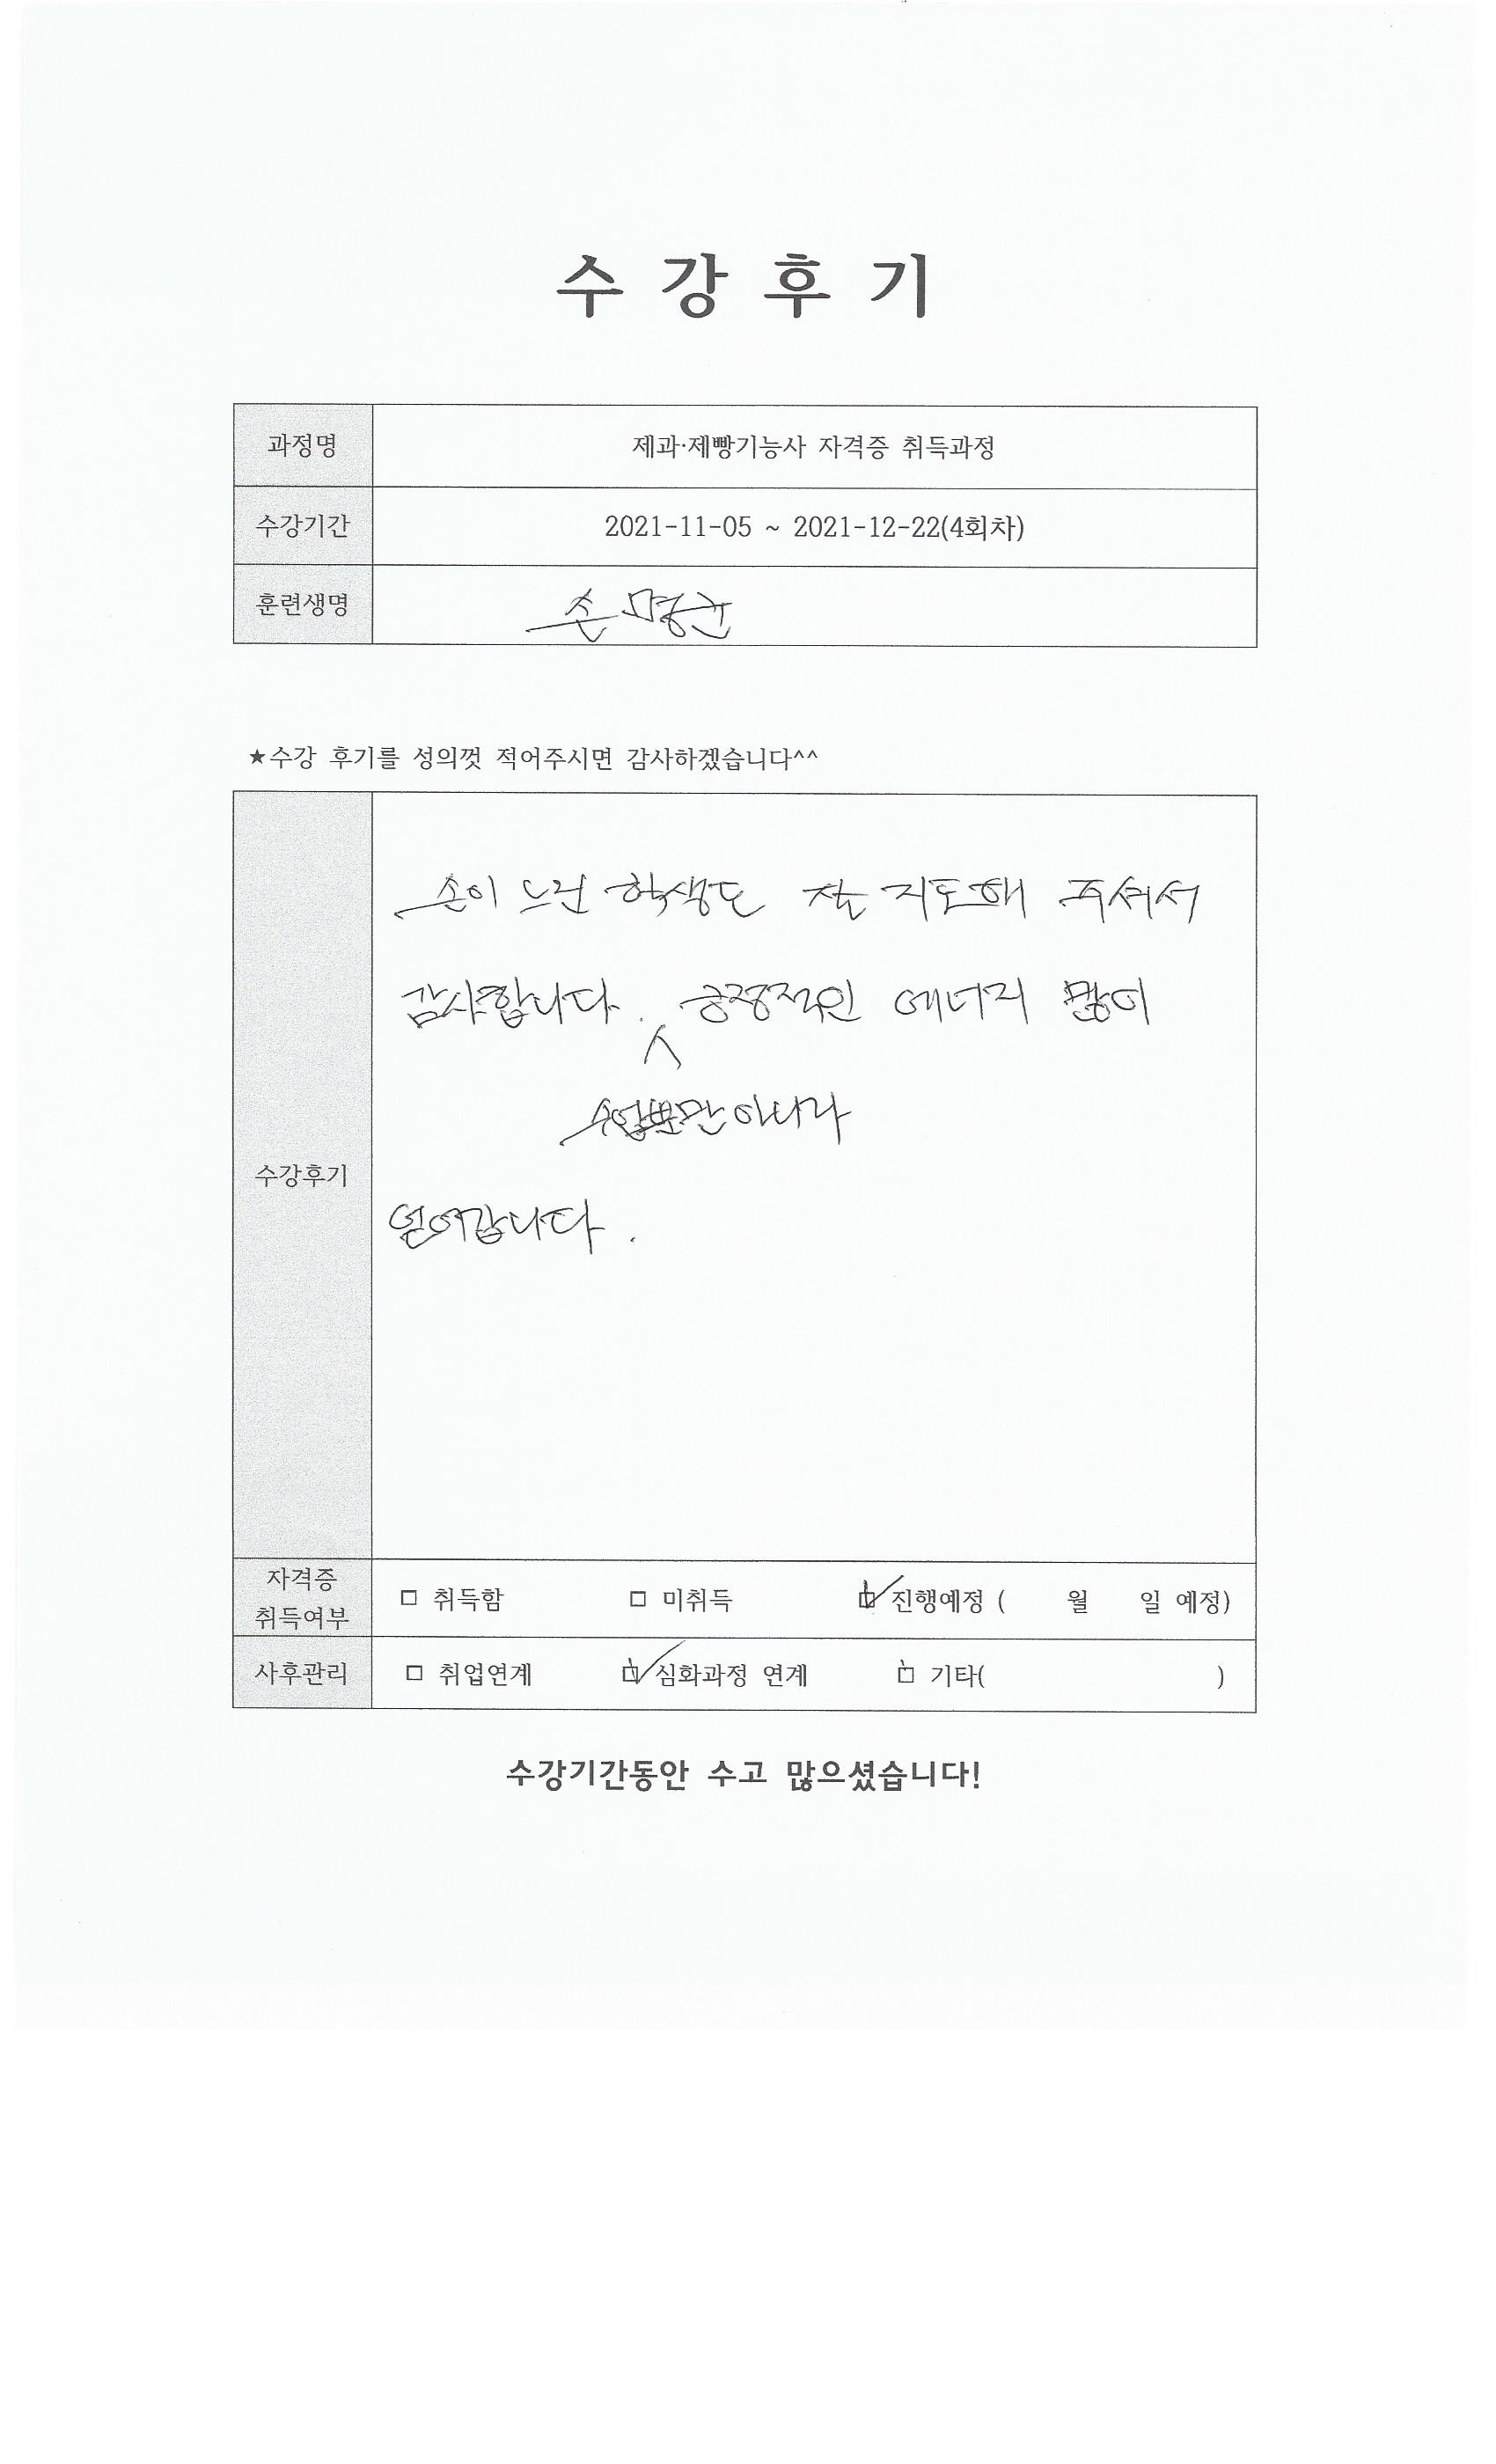 수 강 후 기
과정명 제과·제빵기능사 자격증 취득과정
수강기간 2021-11-05 ~ 2021-12-22(4회차)
훈련생명 손명균
★수강 후기를 성의껏 적어주시면 감사하겠습니다^^
손이 느린 학생도 잘 지도해 주셔서
감사합니다. 긍정적인 에너지 많이
수업뿐만 아니라
수강후기
얻어갑니다.
자격증
취득여부
□ 취득함 □ 미취득 ☑ 진행예정 ( 월 일 예정)
사후관리 □ 취업연계 ☑ 심화과정 연계 □ 기타( )
수강기간동안 수고 많으셨습니다!